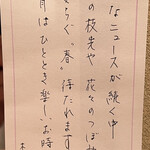 なニュースが続く中
の枝先や 花々のつぼ
らぐ“春”待たれます
月はひとときを楽しいお時